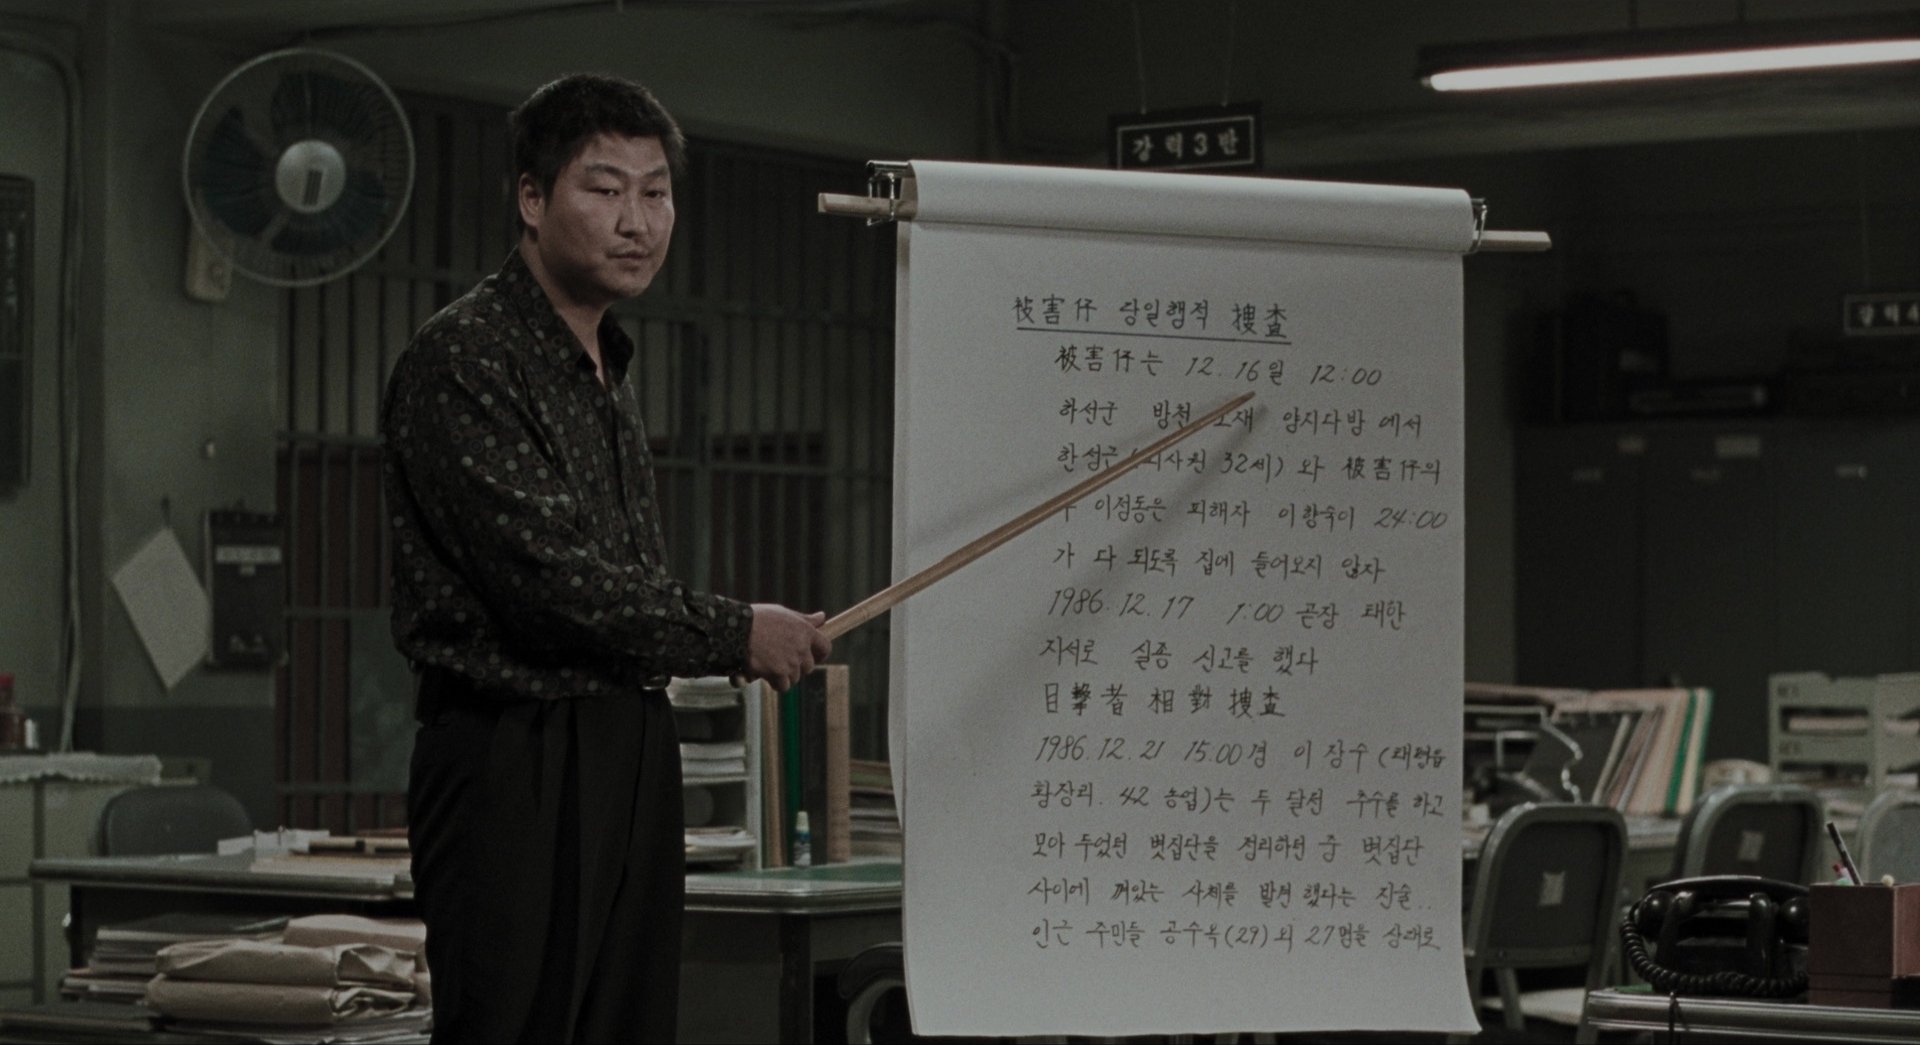 강력3반
강력4
被害仔 당일행적 搜査
被害仔는 12. 16일 12:00
하선군 방천 소재 양지다방 에서
한성근 32세) 와 被害仔의
이정동은 피해자 이향숙이 24:00
가 다 되도록 집에 들어오지 않자
1986. 12. 17 1:00 곧장 태안
지서로 실종 신고를 했다
目擊者 相對 搜査
1986. 12. 21 15.00경 이 장수 (태령읍
황장리. 42 농업)는 두 달전 추수를 하고
모아 두었던 볏집단을 정리하던 중 볏집단
사이에 껴있는 사체를 발견 했다는 진술..
인근 주민들 공수옥(29)외 27명을 상대로